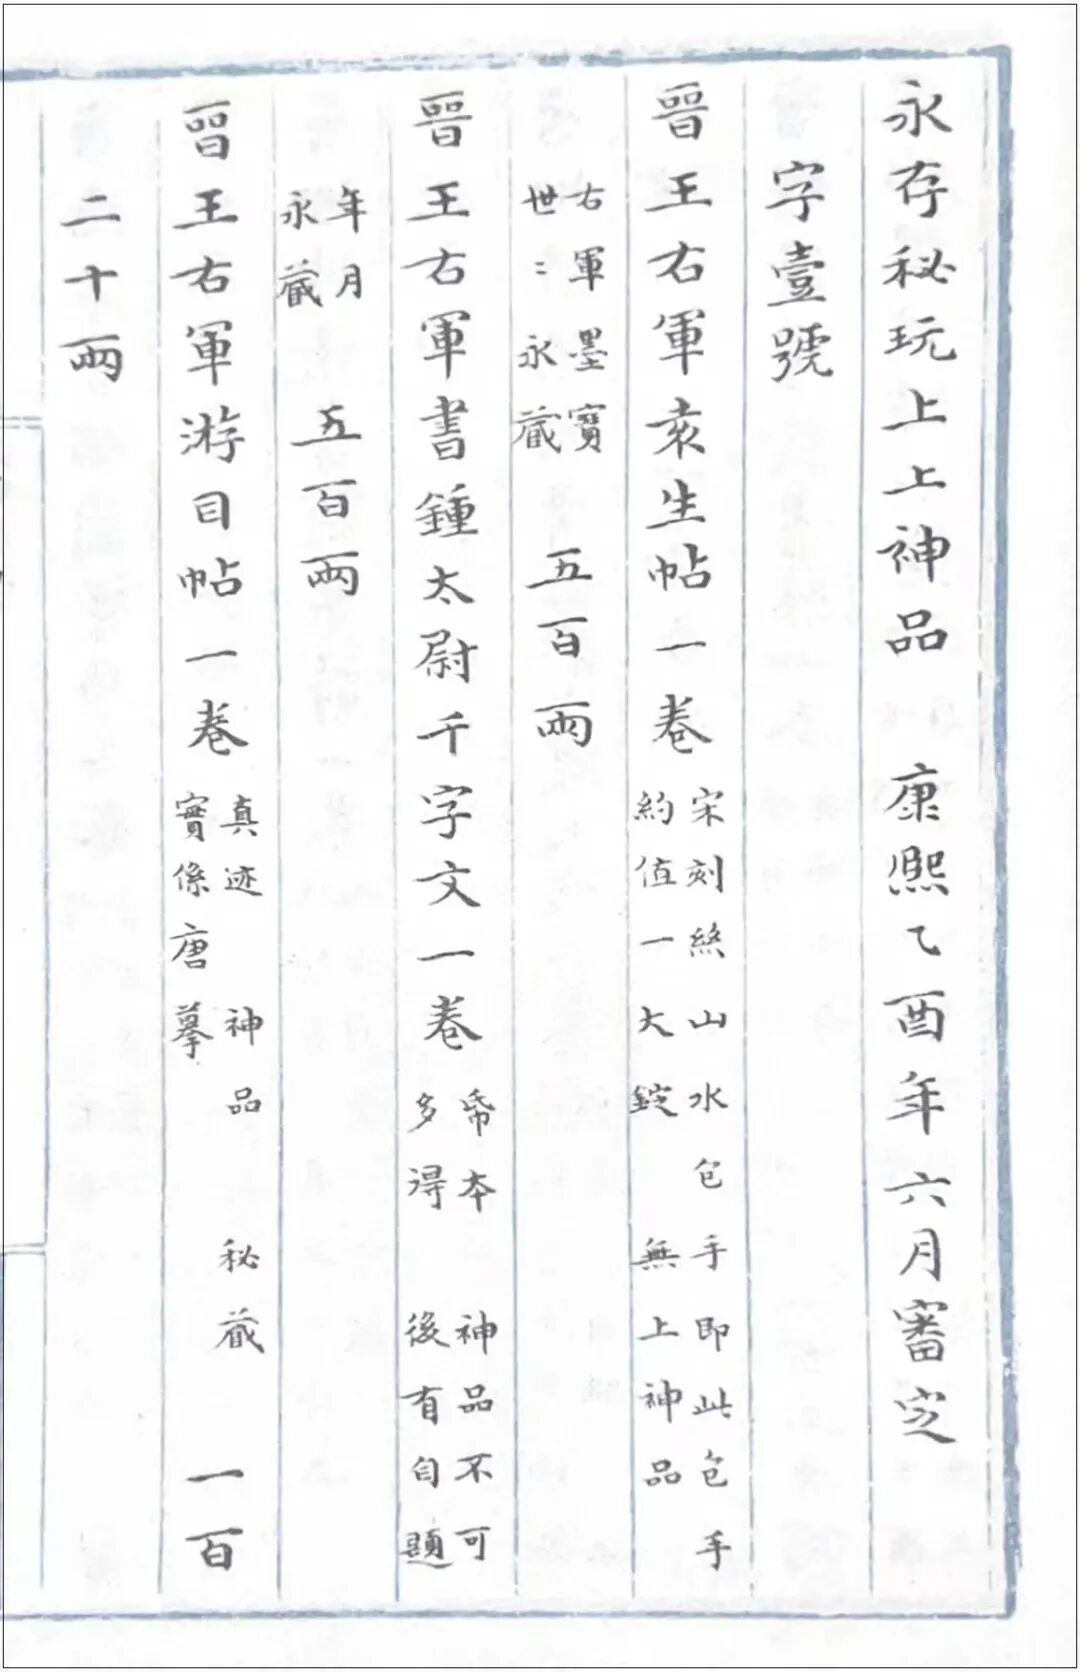 永存秘玩上上神品　康熙乙酉年六月審定
字壹號
晉王右軍袁生帖一卷
宋刻絲山水包手即此包手
約值一大錠　無上神品
右軍墨寶
世〻永藏
五百兩
晉王右軍書鍾太尉千字文一卷
帋本　神品不可
多得　後有自題
年月
永藏
五百兩
晉王右軍游目帖一卷
真迹　神品　秘藏
實係唐摹
一百
二十兩